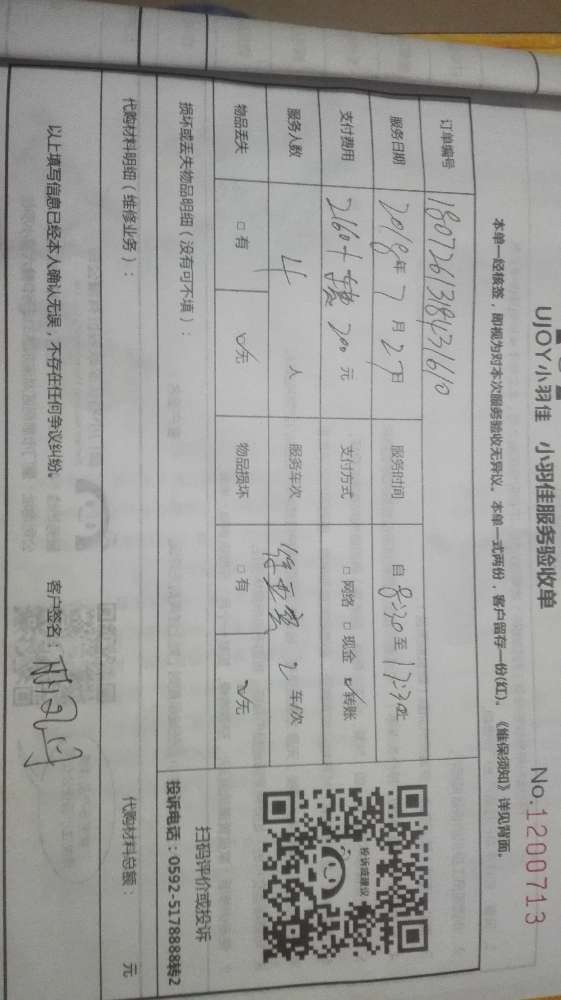 UJOY小羽佳 小羽佳服务验收单 No.1200713
本单一经核签，即视为对本次服务验收无异议。本单一式两份，客户留存一份(红)。《维保须知》详见背面。
订单编号 180726131843161 0
服务日期 2018年7月27日 服务时间 自8:30至17:30止
支付费用 2160+ 200元 支付方式 □网络 □现金 ☑转账
服务人数 4人 服务车次 2车/次
物品丢失 □有 ☑无 物品损坏 □有 ☑无
损坏或丢失物品明细（没有可不填）：
投诉或建议
扫码评价或投诉
投诉电话：0592-5178888转2
代购材料明细（维修业务）： 代购材料总额： 元
以上填写信息已经本人确认无误，不存在任何争议纠纷。 客户签名：